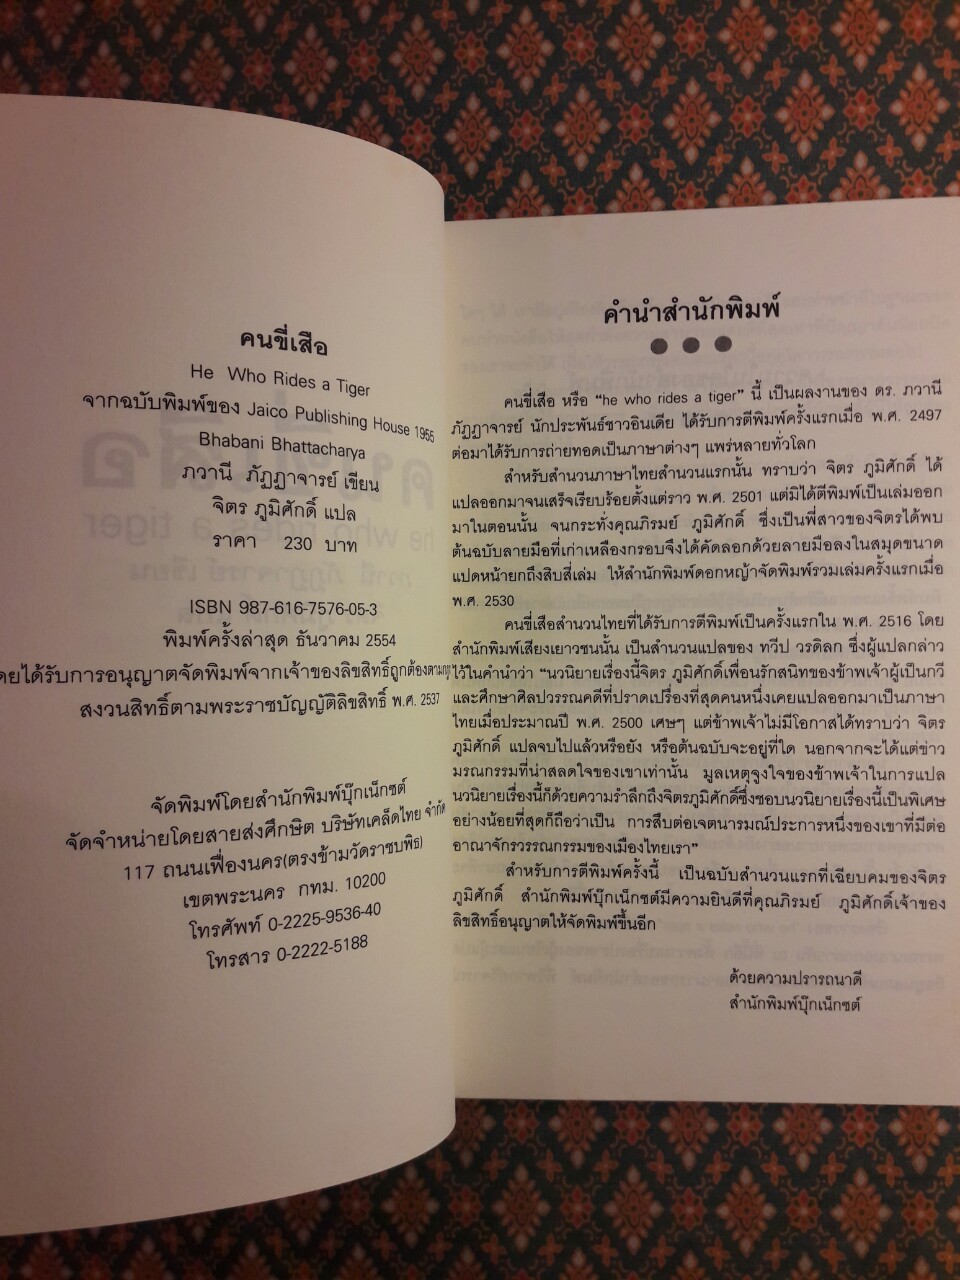 คนขี่เสือ
He Who Rides a Tiger
จากฉบับพิมพ์ของ Jaico Publishing House 1955
Bhabani Bhattacharya
ภวานี ภัฏฏาจารย์ เขียน
จิตร ภูมิศักดิ์ แปล
ราคา 230 บาท
ISBN 987-616-7576-05-3
พิมพ์ครั้งล่าสุด ธันวาคม 2554
ดยได้รับการอนุญาตจัดพิมพ์จากเจ้าของลิขสิทธิ์ถูกต้องตาม
สงวนสิทธิ์ตามพระราชบัญญัติลิขสิทธิ์ พ.ศ. 2537
จัดพิมพ์โดยสำนักพิมพ์บุ๊กเน็กซต์
จัดจำหน่ายโดยสายส่งศึกษิต บริษัทเคล็ดไทย จำกัด
117 ถนนเฟื่องนคร(ตรงข้ามวัดราชบพิธ)
เขตพระนคร กทม. 10200
โทรศัพท์ 0-2225-9536-40
โทรสาร 0-2222-5188
คำนำสำนักพิมพ์
คนขี่เสือ หรือ "he who rides a tiger" นี้ เป็นผลงานของ ดร. ภวานี
ภัฏฏาจารย์ นักประพันธ์ชาวอินเดีย ได้รับการตีพิมพ์ครั้งแรกเมื่อ พ.ศ. 2497
ต่อมาได้รับการถ่ายทอดเป็นภาษาต่างๆ แพร่หลายทั่วโลก
สำหรับสำนวนภาษาไทยสำนวนแรกนั้น ทราบว่า จิตร ภูมิศักดิ์ ได้
แปลออกมาจนเสร็จเรียบร้อยตั้งแต่ราว พ.ศ. 2501 แต่มิได้ตีพิมพ์เป็นเล่มออก
มาในตอนนั้น จนกระทั่งคุณภิรมย์ ภูมิศักดิ์ ซึ่งเป็นพี่สาวของจิตรได้พบ
ต้นฉบับลายมือที่เก่าเหลืองกรอบจึงได้คัดลอกด้วยลายมือลงในสมุดขนาด
แปดหน้ายกถึงสิบสี่เล่ม ให้สำนักพิมพ์ดอกหญ้าจัดพิมพ์รวมเล่มครั้งแรกเมื่อ
พ.ศ. 2530
คนขี่เสือสำนวนไทยที่ได้รับการตีพิมพ์เป็นครั้งแรกใน พ.ศ. 2516 โดย
สำนักพิมพ์เสียงเยาวชนนั้น เป็นสำนวนแปลของ ทวีป วรดิลก ซึ่งผู้แปลกล่าว
ไว้ในคำนำว่า "นวนิยายเรื่องนี้จิตร ภูมิศักดิ์เพื่อนรักสนิทของข้าพเจ้าผู้เป็นกวี
และศึกษาศิลปวรรณคดีที่ปราดเปรื่องที่สุดคนหนึ่งเคยแปลออกมาเป็นภาษา
ไทยเมื่อประมาณปี พ.ศ. 2500 เศษๆ แต่ข้าพเจ้าไม่มีโอกาสได้ทราบว่า จิตร
ภูมิศักดิ์ แปลจบไปแล้วหรือยัง หรือต้นฉบับจะอยู่ที่ใด นอกจากจะได้แต่ข่าว
มรณกรรมที่น่าสลดใจของเขาเท่านั้น มูลเหตุจูงใจของข้าพเจ้าในการแปล
นวนิยายเรื่องนี้ก็ด้วยความรำลึกถึงจิตรภูมิศักดิ์ซึ่งชอบนวนิยายเรื่องนี้เป็นพิเศษ
อย่างน้อยที่สุดก็ถือว่าเป็น การสืบต่อเจตนารมณ์ประการหนึ่งของเขาที่มีต่อ
อาณาจักรวรรณกรรมของเมืองไทยเรา"
สำหรับการตีพิมพ์ครั้งนี้ เป็นฉบับสำนวนแรกที่เฉียบคมของจิตร
ภูมิศักดิ์ สำนักพิมพ์บุ๊กเน็กซต์มีความยินดีที่คุณภิรมย์ ภูมิศักดิ์เจ้าของ
ลิขสิทธิ์อนุญาตให้จัดพิมพ์ขึ้นอีก
ด้วยความปรารถนาดี
สำนักพิมพ์บุ๊กเน็กซต์